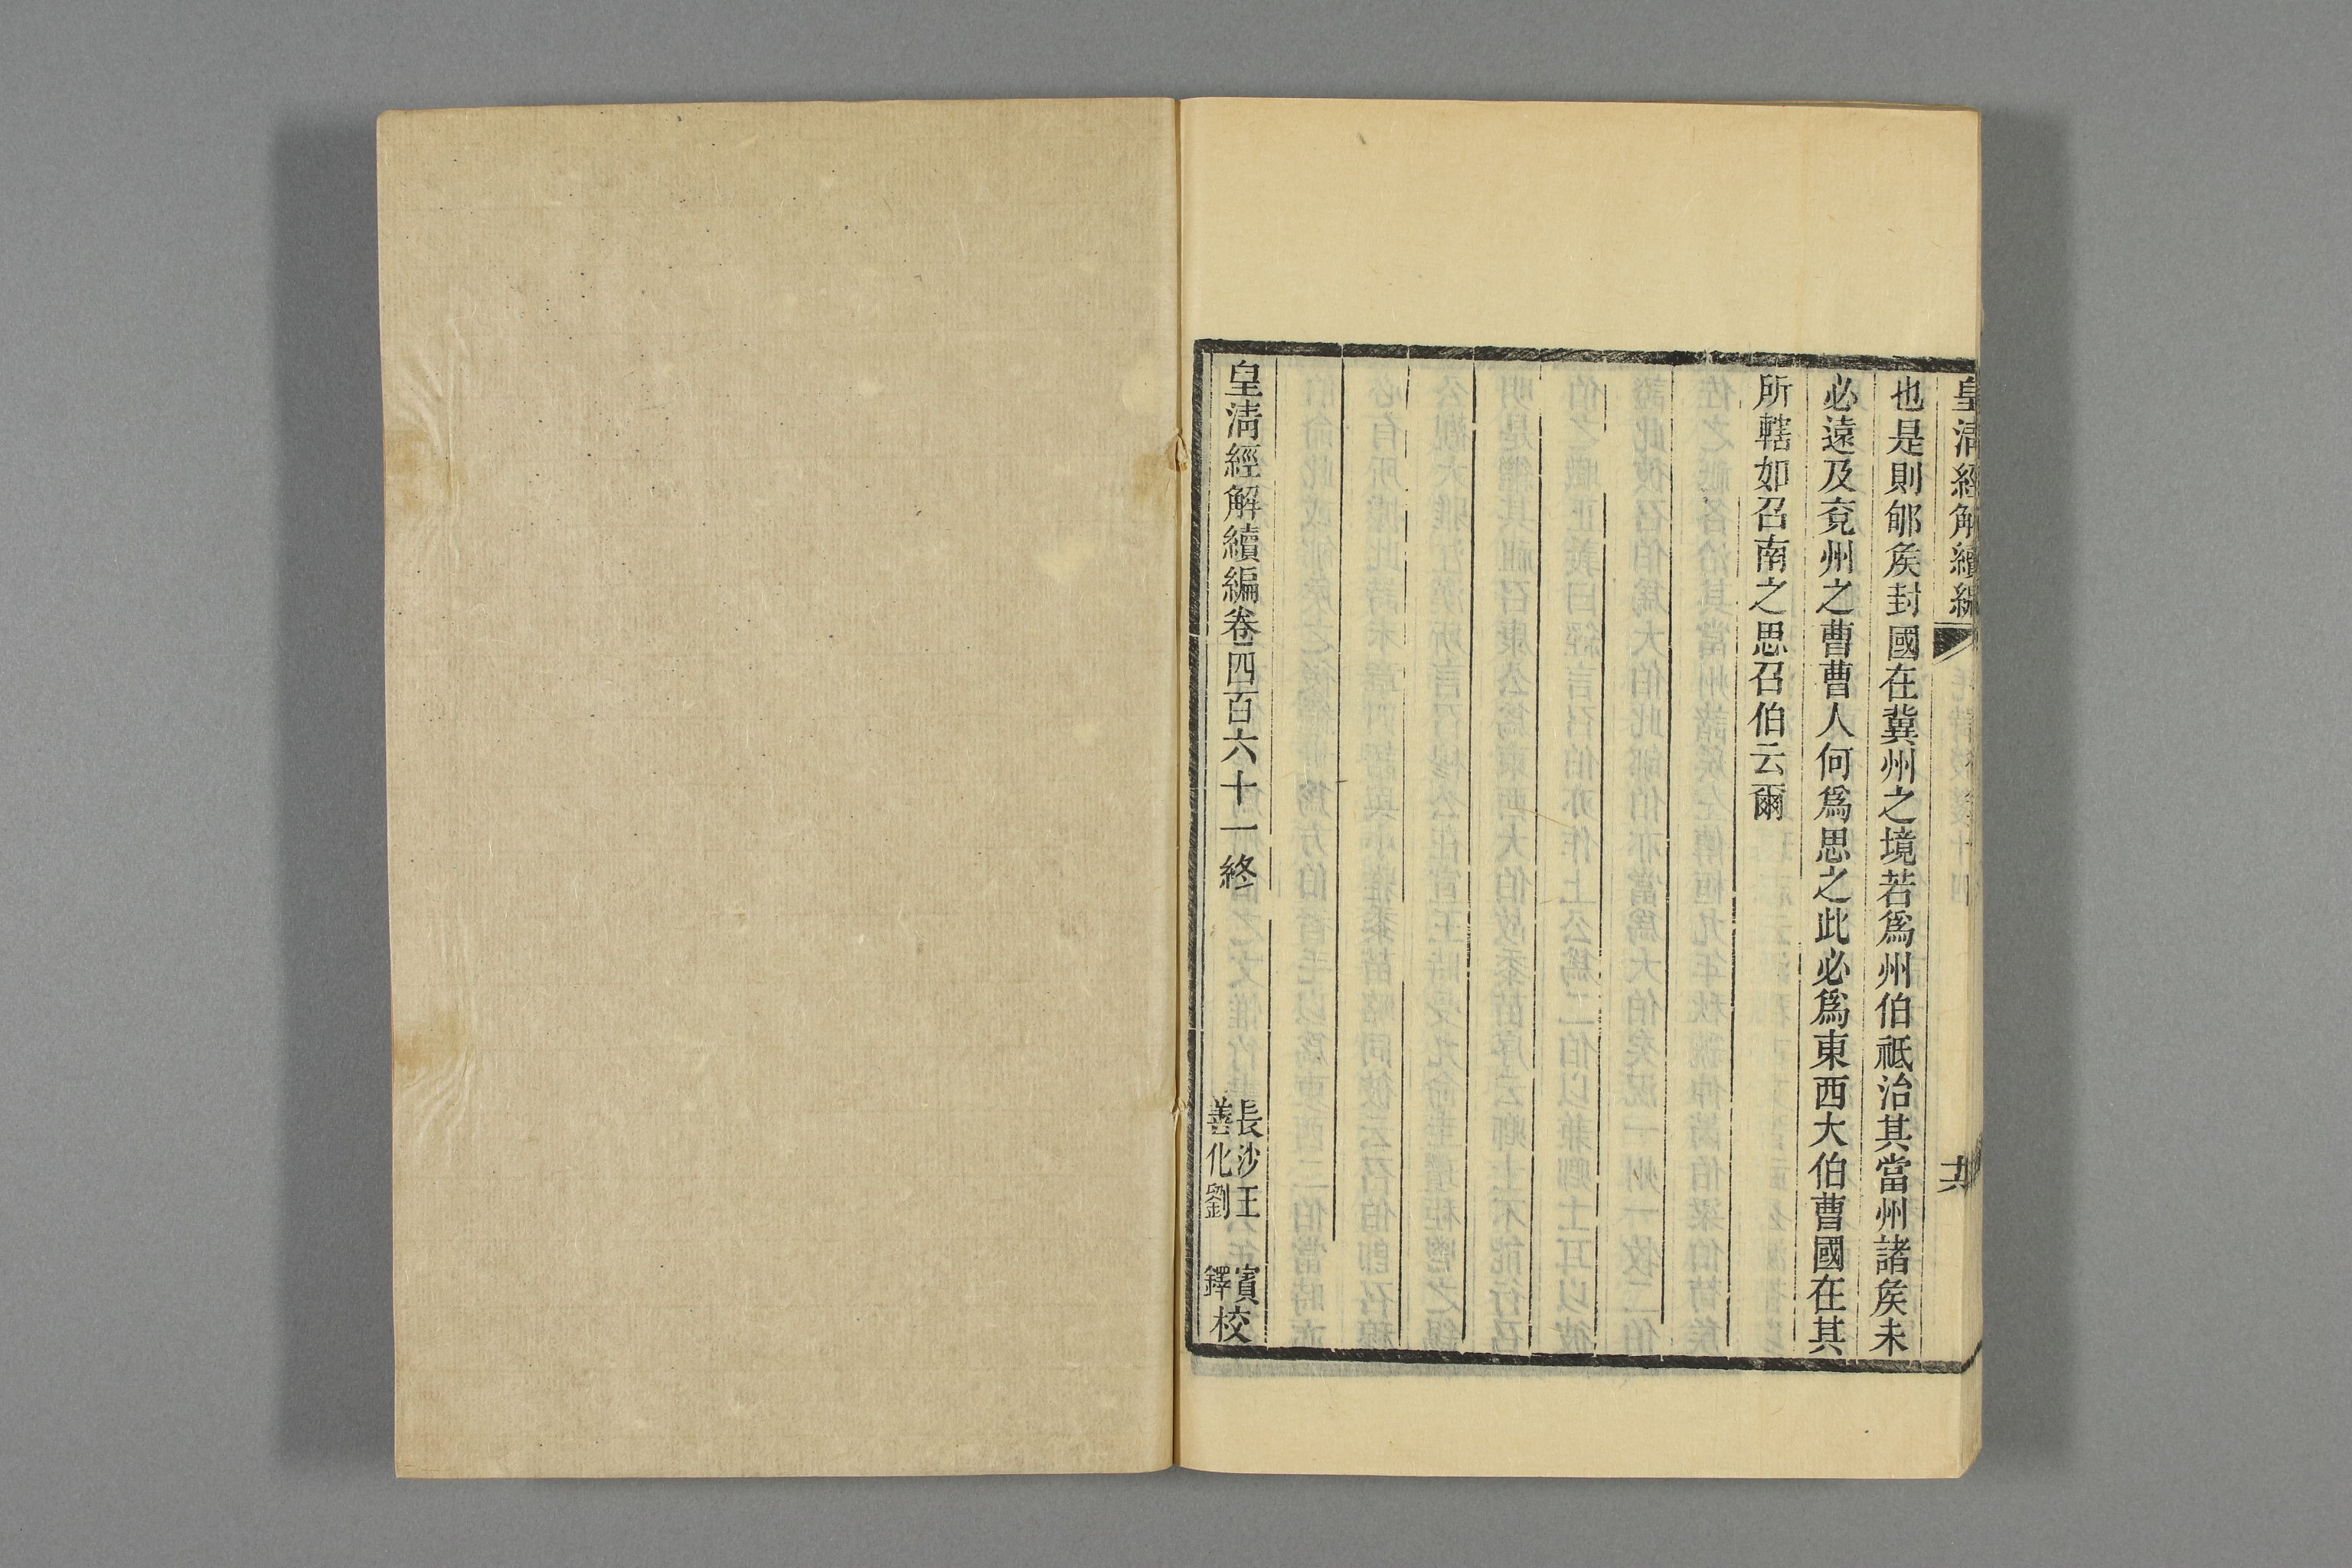 皇清經解續編
也是則郇矦封國在冀州之境若爲州伯祗治其當州諸矦未
必遠及兗州之曹曹人何爲思之此必爲東西大伯曹國在其
所轄如召南之思召伯云爾
皇清經解續編卷四百六十一終
長沙王賓
善化劉鐸校